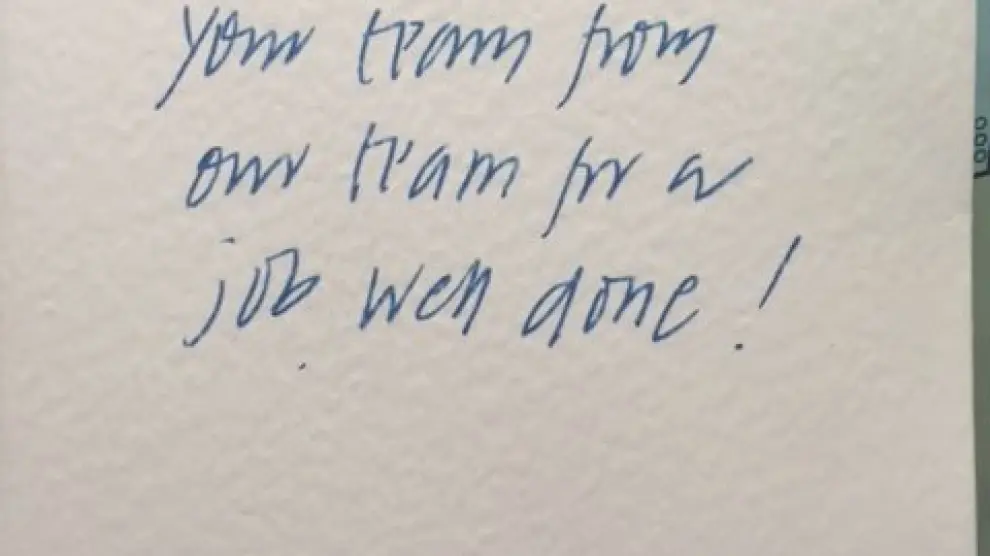 your team from
our team for a
job well done!